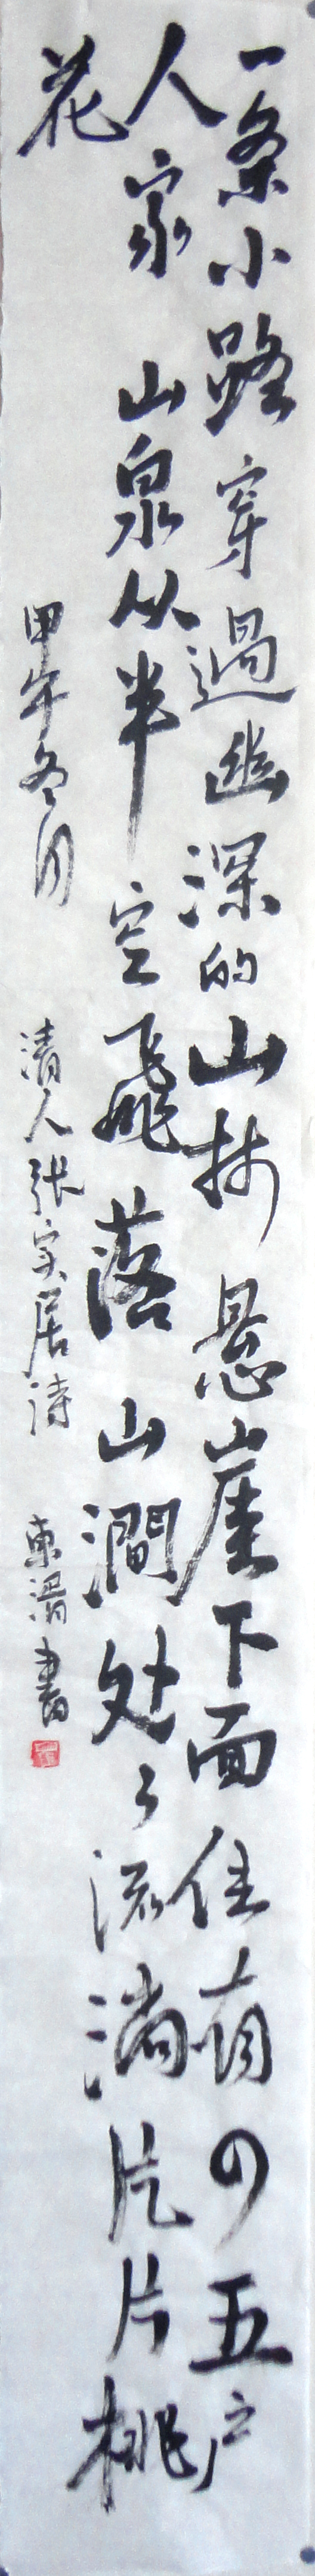 一条小路穿過幽深的山村悬崖下面住有四五户
人家山泉从半空飛落山澗处々流淌片片桃
花
甲午冬月清人张实居诗東渭書